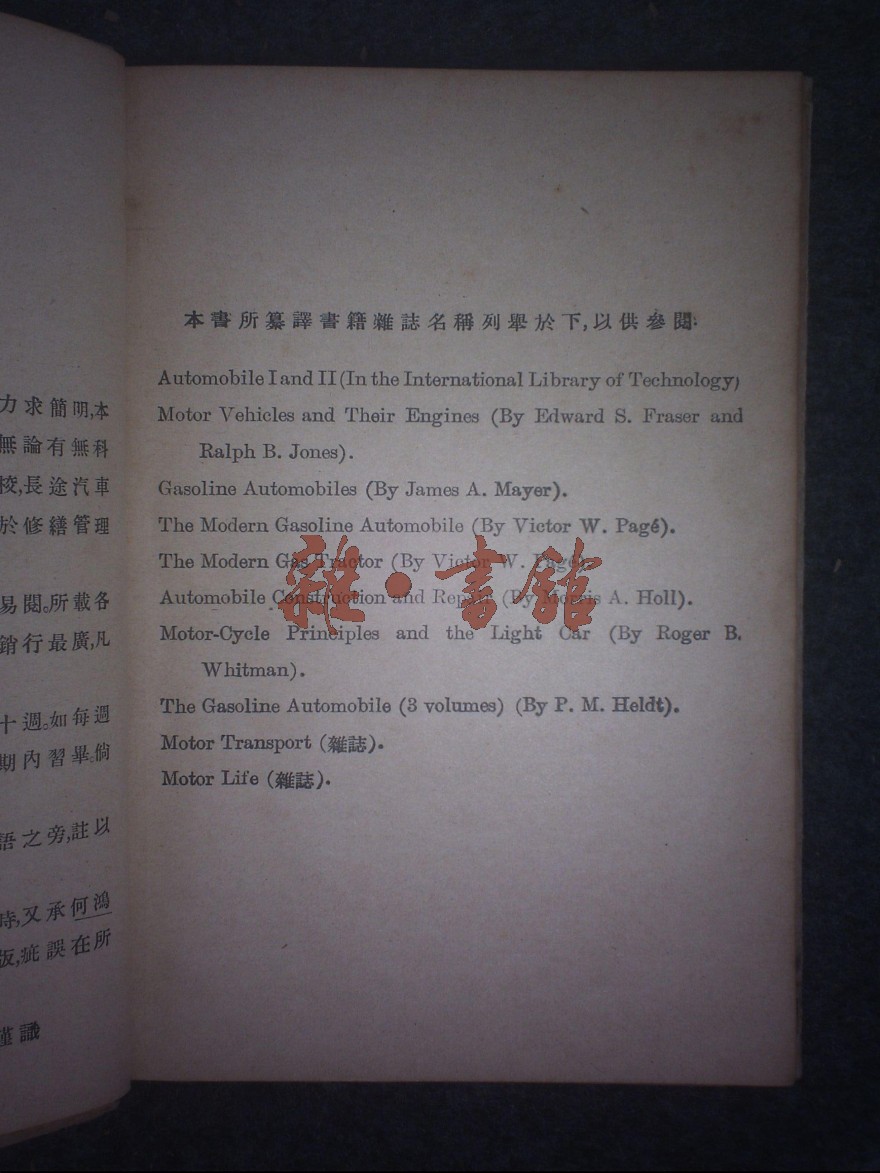 力求簡明,本
無論有無科
校,長途汽車
於修繕管理
易閱。所載各
銷行最廣,凡
十週。如每週
期內習畢。倘
語之旁,註以
時,又承何鴻
版,疵誤在所
謹識
本書所纂譯書籍雜誌名稱列舉於下,以供參閱:
Automobile I and II (In the International Library of Technology)
Motor Vehicles and Their Engines (By Edward S. Fraser and
Ralph B. Jones).
Gasoline Automobiles (By James A. Mayer).
The Modern Gasoline Automobile (By Victor W. Pagé).
The Modern Gas Tractor (By Victor W. Pagé).
Automobile Construction and Repair (By Morris A. Holl).
Motor-Cycle Principles and the Light Car (By Roger B.
Whitman).
The Gasoline Automobile (3 volumes) (By P. M. Heldt).
Motor Transport (雜誌).
Motor Life (雜誌).
雜·書館